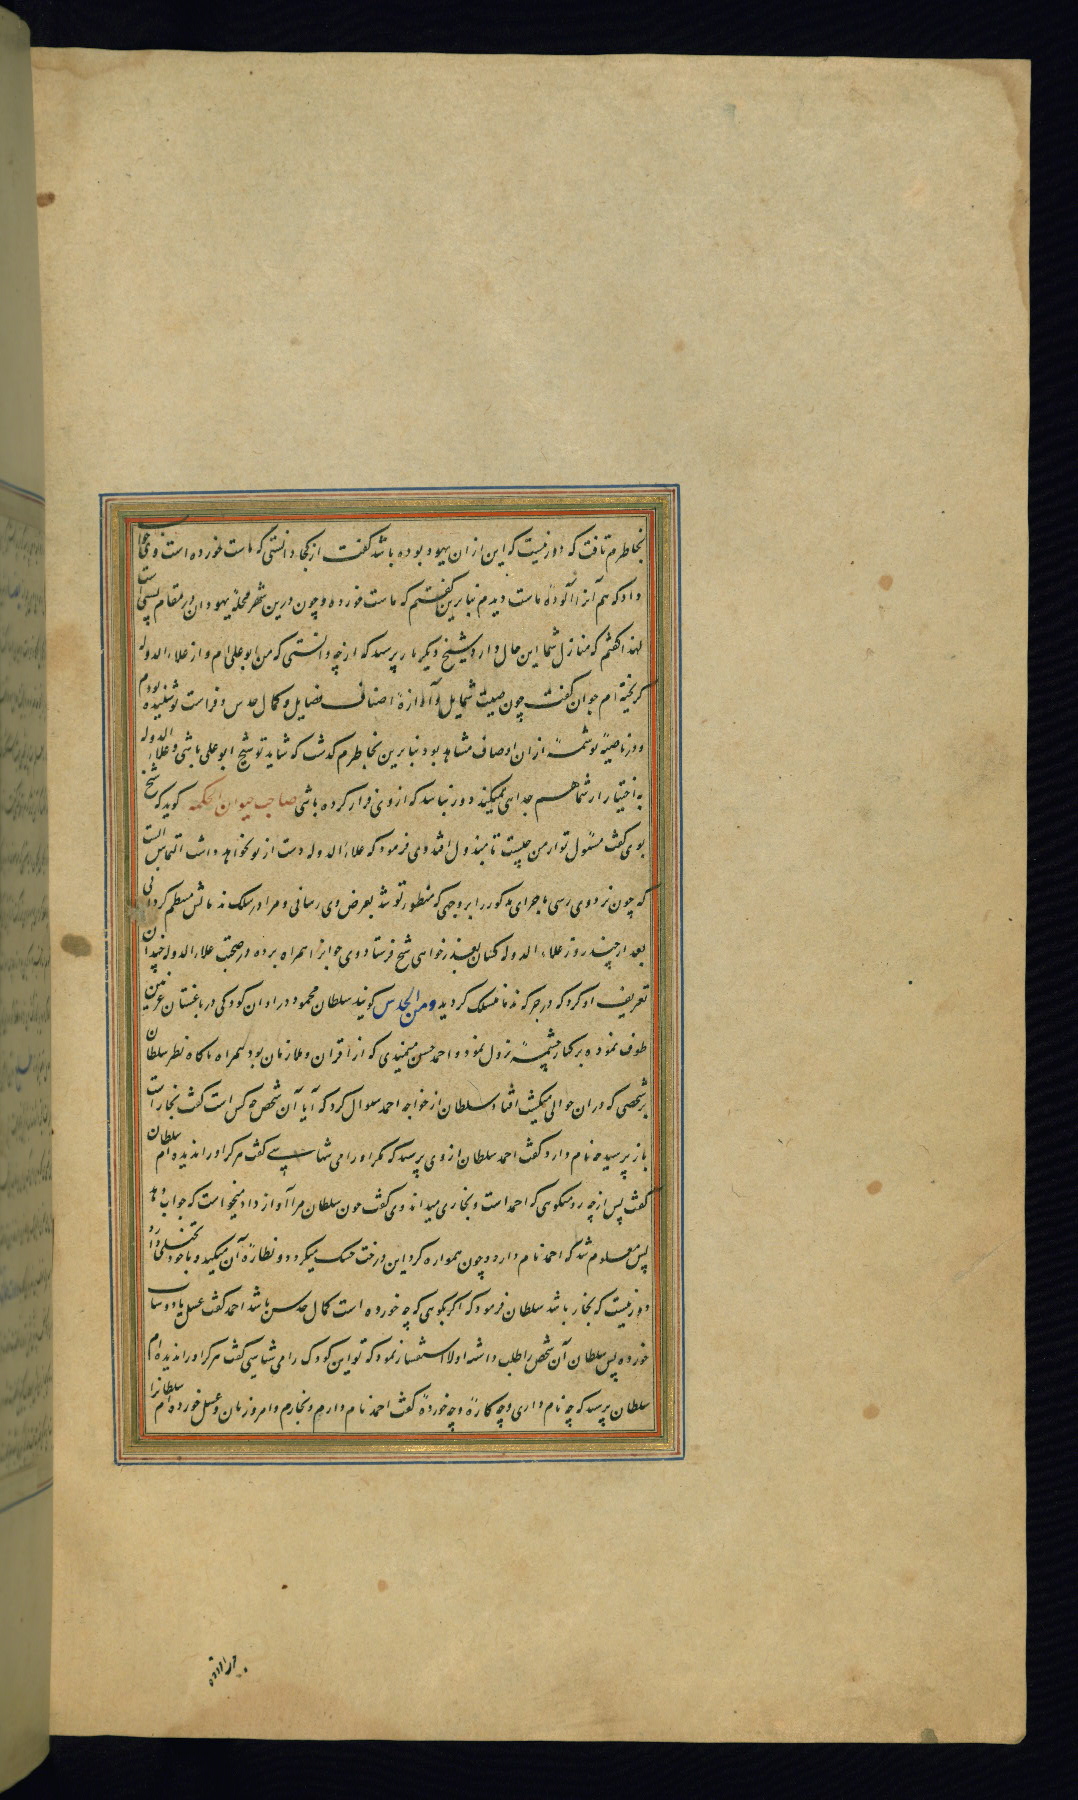 بخاطرم تافت که دور نیست که این از ان یهود بوده باشد گفت از کجا دانستی که ماست خورده است وی جواب
داد که هم آنرا آلودهٔ ماست دیدم بنابرین گفتم که ماست خورده و چون درین شهر محلهٔ یهودان در مقام پستی است
لهذا گفتم که منازل شما این حال دارد شیخ دیگر بار پرسید که از چه دانستی که من ابو علی ام و از علاء الدوله
گریخته ام جوان گفت چون صیت شمایل و آوازهٔ اصناف فضایل و کمال حدس و فراست تو شنیده بودم
و در ناصیهٔ تو شمهٔ از ان اوصاف مشاهد بود بنابرین بخاطرم گذشت که شاید تو شیخ ابو علی باشی و علاء الدوله
به اختیار از شما هم جدایی نمیکند دور نباشد که از وی فرار کرده باشی صاحب صوان الحکمه گوید که شیخ
بوی گفت مسئول تو از من چیست تا مبذول افتد وی فرمود که علاء الدوله دست از تو نخواهد داشت التماس آنست
که چون نزد وی رسی ماجرای مذکور را بر وجهی که منظور تو شد بعرض وی رسانی و مرا در سلک ندمائش منتظم گردانی
بعد از چند روز علاء الدوله کسان بعذر خواهی شیخ فرستاد وی جوانرا همراه برده در صحبت علاء الدوله چندان
تعریف او کرد که در جرکه ندما منسلک گردید ومن الحدس گویند سلطان محمود در اوان کودکی در باغستان غزنین
طوف نموده بر کنار چشمهٔ نزول نمود و احمد حسن میمندی که از اقران و ملازمان بود همراه ناگاه نظر سلطان
بر شخصی که در ان حوالی میگشت افتاد سلطان از خواجه احمد سوال کرد که آیا آن شخص چه کس است گفت نجار است
باز پرسید چه نام دارد گفت احمد سلطان از وی پرسید که مگر او را می شناسی گفت هرگز او را ندیده ام سلطان
گفت پس از چه رو میگویی که احمد است و نجاری میداند وی گفت چون سلطان مرا آواز داد میخواست که جواب دهد
پس معلوم شد که احمد نام دارد و چون همواره گرد این درخت خشک میگردد و نظارهٔ آن میکند و با خود تخیلی دارد
دور نیست که نجار باشد سلطان فرمود که اگر بگویی که چه خورده است کمال حدس باشد احمد گفت عسل یا دوشاب
خورده پس سلطان آن شخص را طلب داشته اولا استفسار نمود که تو این کودک را می شناسی گفت هرگز او را ندیده ام
سلطان پرسید که چه نام داری و چه کارهٔ و چه خوردهٔ گفت احمد نام دارم و نجارم و امروز نان و عسل خورده ام سلطانرا